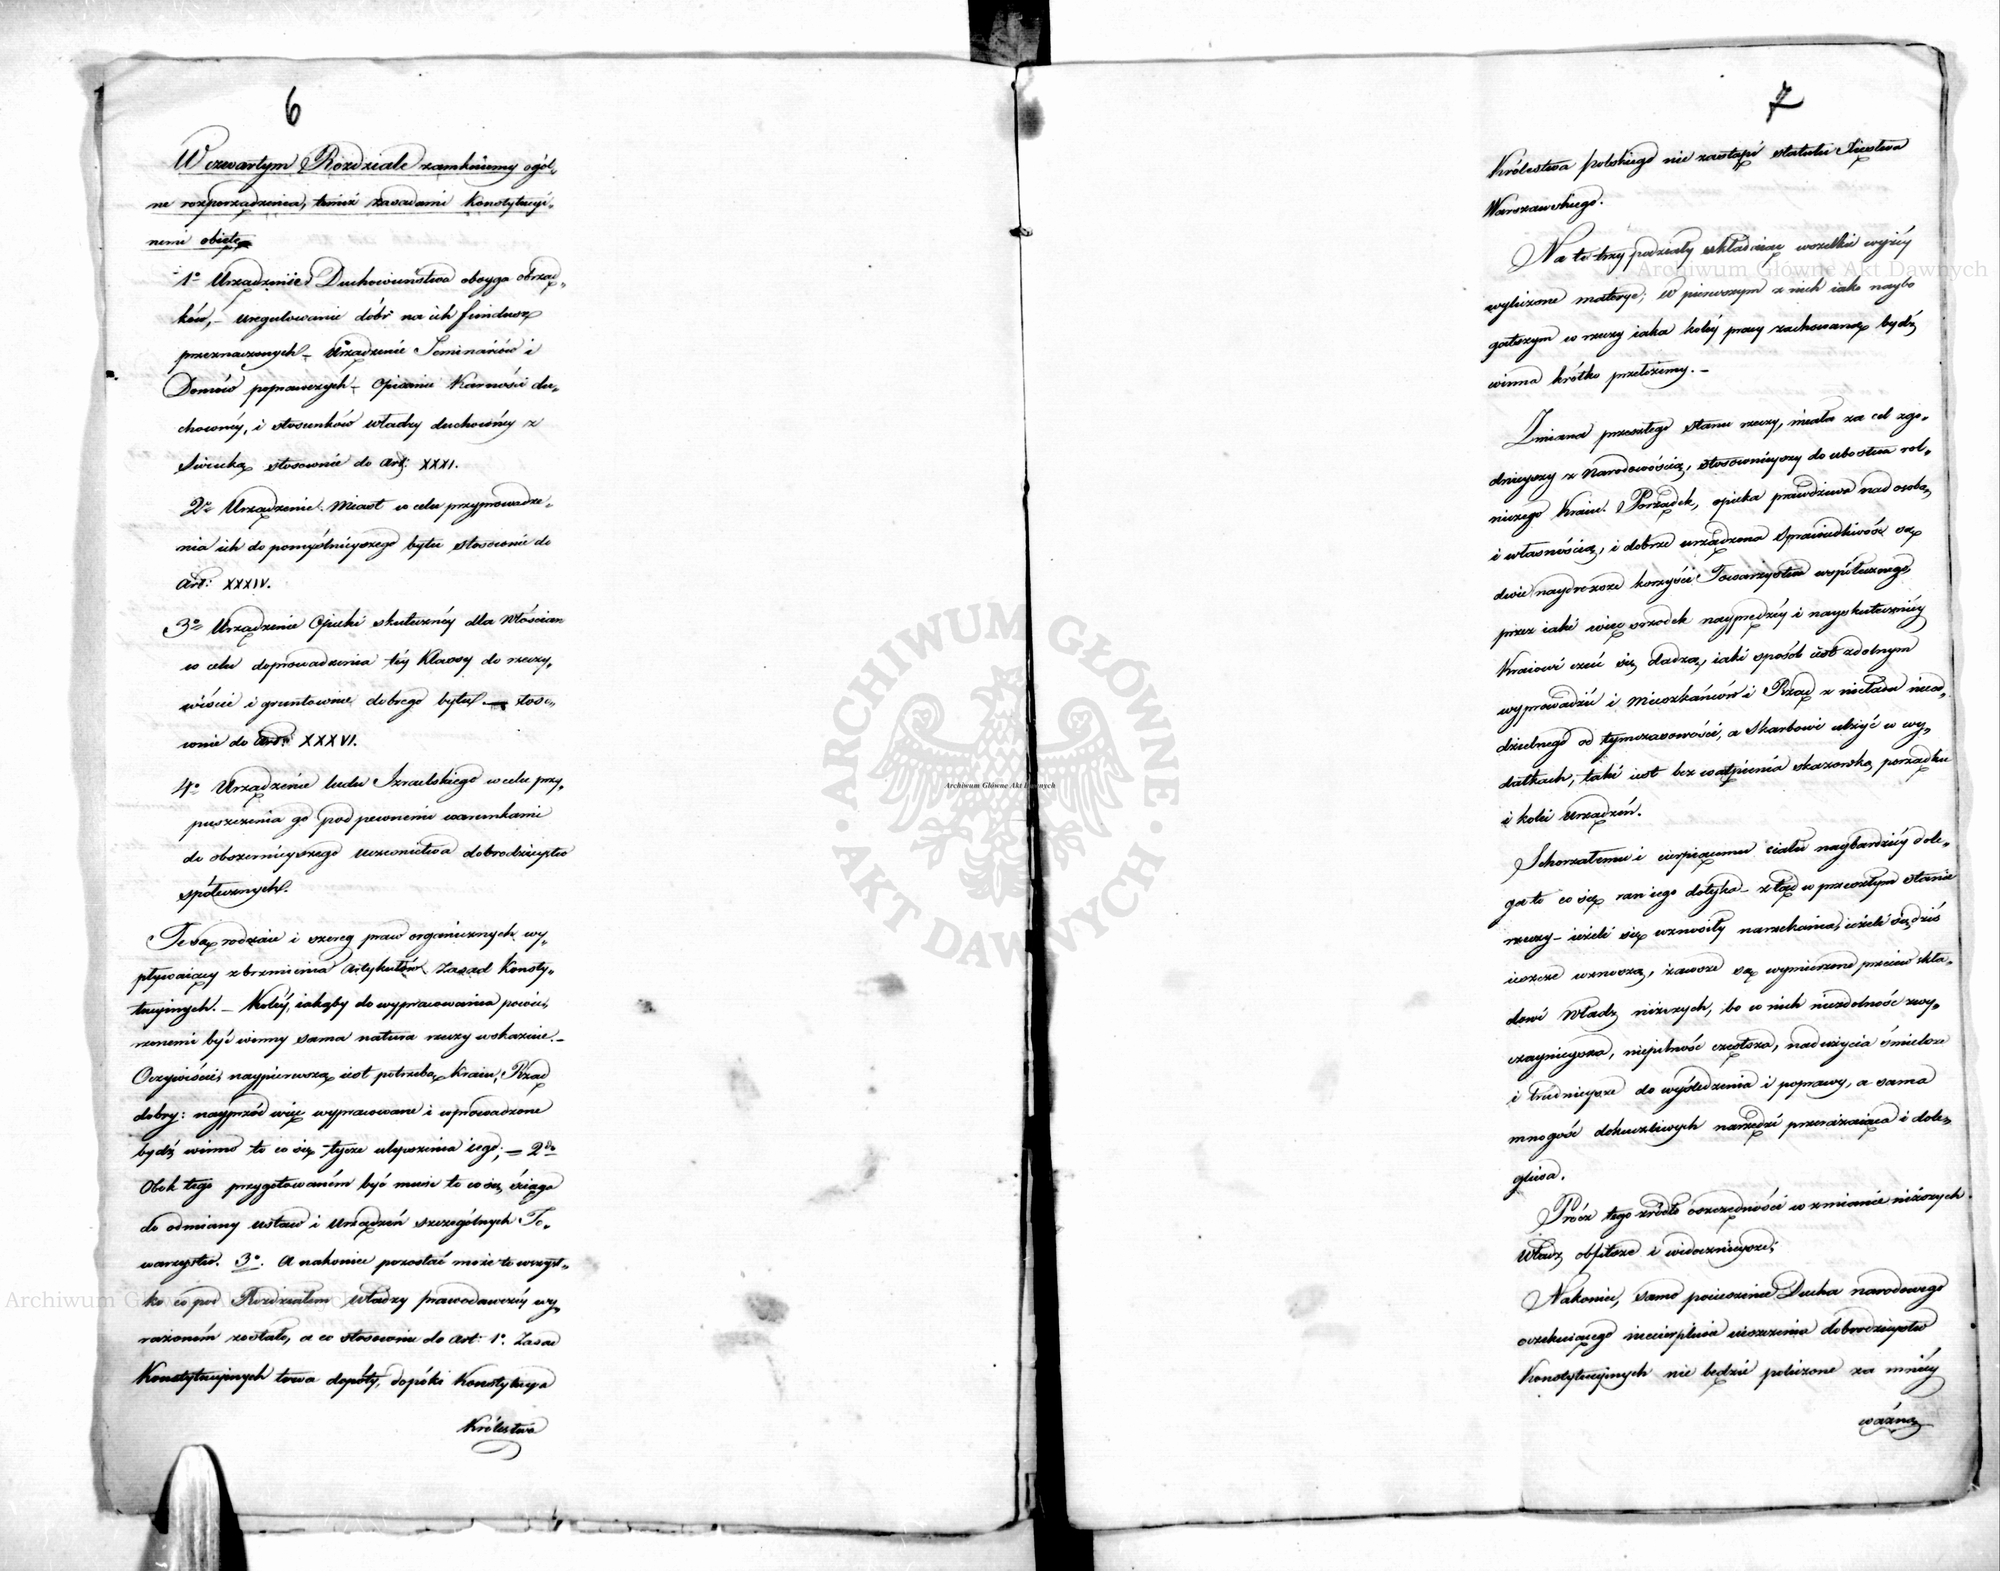 6
W czwartym Rozdziale zamkniemy ogól„
ne rozporządzenia, temiż zasadami konstytucyi„
nemi obięte
1º Urządzenie Duchowieństwa oboyga obrząd„
ków, – uregulowanie dóbr na ich fundusz
przeznaczonych – Urządzenie Seminariów i
Domów poprawczych – Opisanie Karności du„
chownéy, i stosunków władzy duchownéy z
Świecką stosownie do Art: XXXI.
2º Urządzenie Miast w celu przyprowadze„
nia ich do pomyślnieyszego bytu stosownie do
Art: XXXIV.
3º Urządzenie Opieki skutecznéy dla Włościan
w celu doprowadzenia téy Klassy do rzeczy„
wiście i gruntownie dobrego bytu — stoso„
wnie do Art: XXXVI.
4º Urządzenie ludu Izraelskiego w celu przy„
puszczenia go pod pewnemi warunkami
do obszernieyszego uczestnictwa dobrodzieystw
społecznych.
Te są rodzaie i szereg praw organicznych wy„
pływaiący z brzmienia Artykułów Zasad Konsty„
tucyinych. – Koléy, iakąby do wypracowania powie„
rzonemi być winny sama natura rzeczy wskazuie. –
Oczywiście, naypierwszą iest potrzebą Kraiu, Rząd
dobry: nayprzód więc wypracowane i wprowadzone
bydź winno to co się tycze ulepszenia iego; – 2do
Obok tego przygotowaném być musi to co się ściąga
do odmiany ustaw i Urządzeń szczególnych To„
warzystw. 3º. A nakoniec pozostać może to wszyst„
ko co pod Rozdziałem władzy prawodawczéy wy„
rażoném zostało, a co stosownie do Art: 1º Zasad
Konstytucyinych trwa dopóty, dopóki Konstytucya
Królestwa
7
Królestwa Polskiego nie zastąpi statutu Xięstwa
Warszawskiego.
Na te trzy podziały składaiąc wszelkie wyżéy
wyliczone materye; w pierwszym z nich iako naybo
gatszym w rzeczy iaka koléy pracy zachowaną bydź
winna krótko przełożemy. –
Zmiana przeszłego stanu rzeczy, miała za cel zgo„
dnieyszy z Narodowością, stosownieyszy do ubóstwa rol„
niczego Kraiu. Porządek, opieka prawdziwa nad osobą
i własnością, i dobrze urządzona Sprawiedliwość są
dwie naydroższe korzyści Towarzystwa współecznego,
przez iaki więc srzodek nayprędzéy i nayskutecznéy
Kraiowi czuć się dadzą, iaki sposób iest zdolnym
wyprowadzić i Mieszkańców i Rząd z nieładu nieod„
dzielnego od tymczasowości, a Skarbowi ulżyć w wy„
datkach, taki iest bez wątpienia skazówką porządku
i kolei Urządzeń.
Schorzałemu i cierpiącemu ciału naybardziéy dole„
ga to co się ran iego dotyka – ztąd w przeszłym stanie
rzeczy – ieżeli się wznosiły narzekania, ieżeli się dziś
ieszcze wznoszą, zawsze są wymierzone przeciw skła„
dowi Władz niższych, bo w nich niezdolność zwy„
czaynieysza, niepilność częstsza, nadużycia śmielsze
i trudnieysze do wyśledzenia i poprawy, a sama
mnogość dokuczliwych narzędzi przerażaiąca i dole„
gliwa.
Prócz tego źródło oszczędności w zmianie niższych
Władz obfitsze i widocznieysze;
Nakoniec, samo pocieszenie Ducha narodowego
oczekuiącego niecierpliwie uiszczenia dobrodzieystw
Konstytucyinych nie będzie policzone za mniéy
ważną